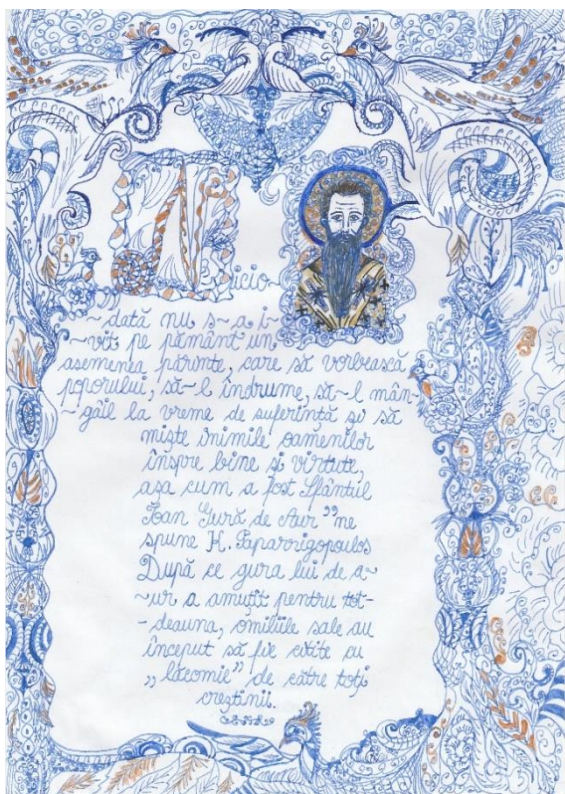 Nicio-
-dată nu s-a i-
-vit pe pământ un
asemenea părinte, care să vorbească
poporului, să-l îndrume, să-l mân-
-gâil la vreme de suferință și să
miște inimile oamenilor
înspre bine și virtute,
așa cum a fost Sfântul
Ioan Gură de Aur” ne
spune H. Paparrigopoulos
După ce gura lui de a-
-ur a amuțit pentru tot-
-deauna, omiliile sale au
început să fie citite cu
„lăcomie” de către toți
creștinii.